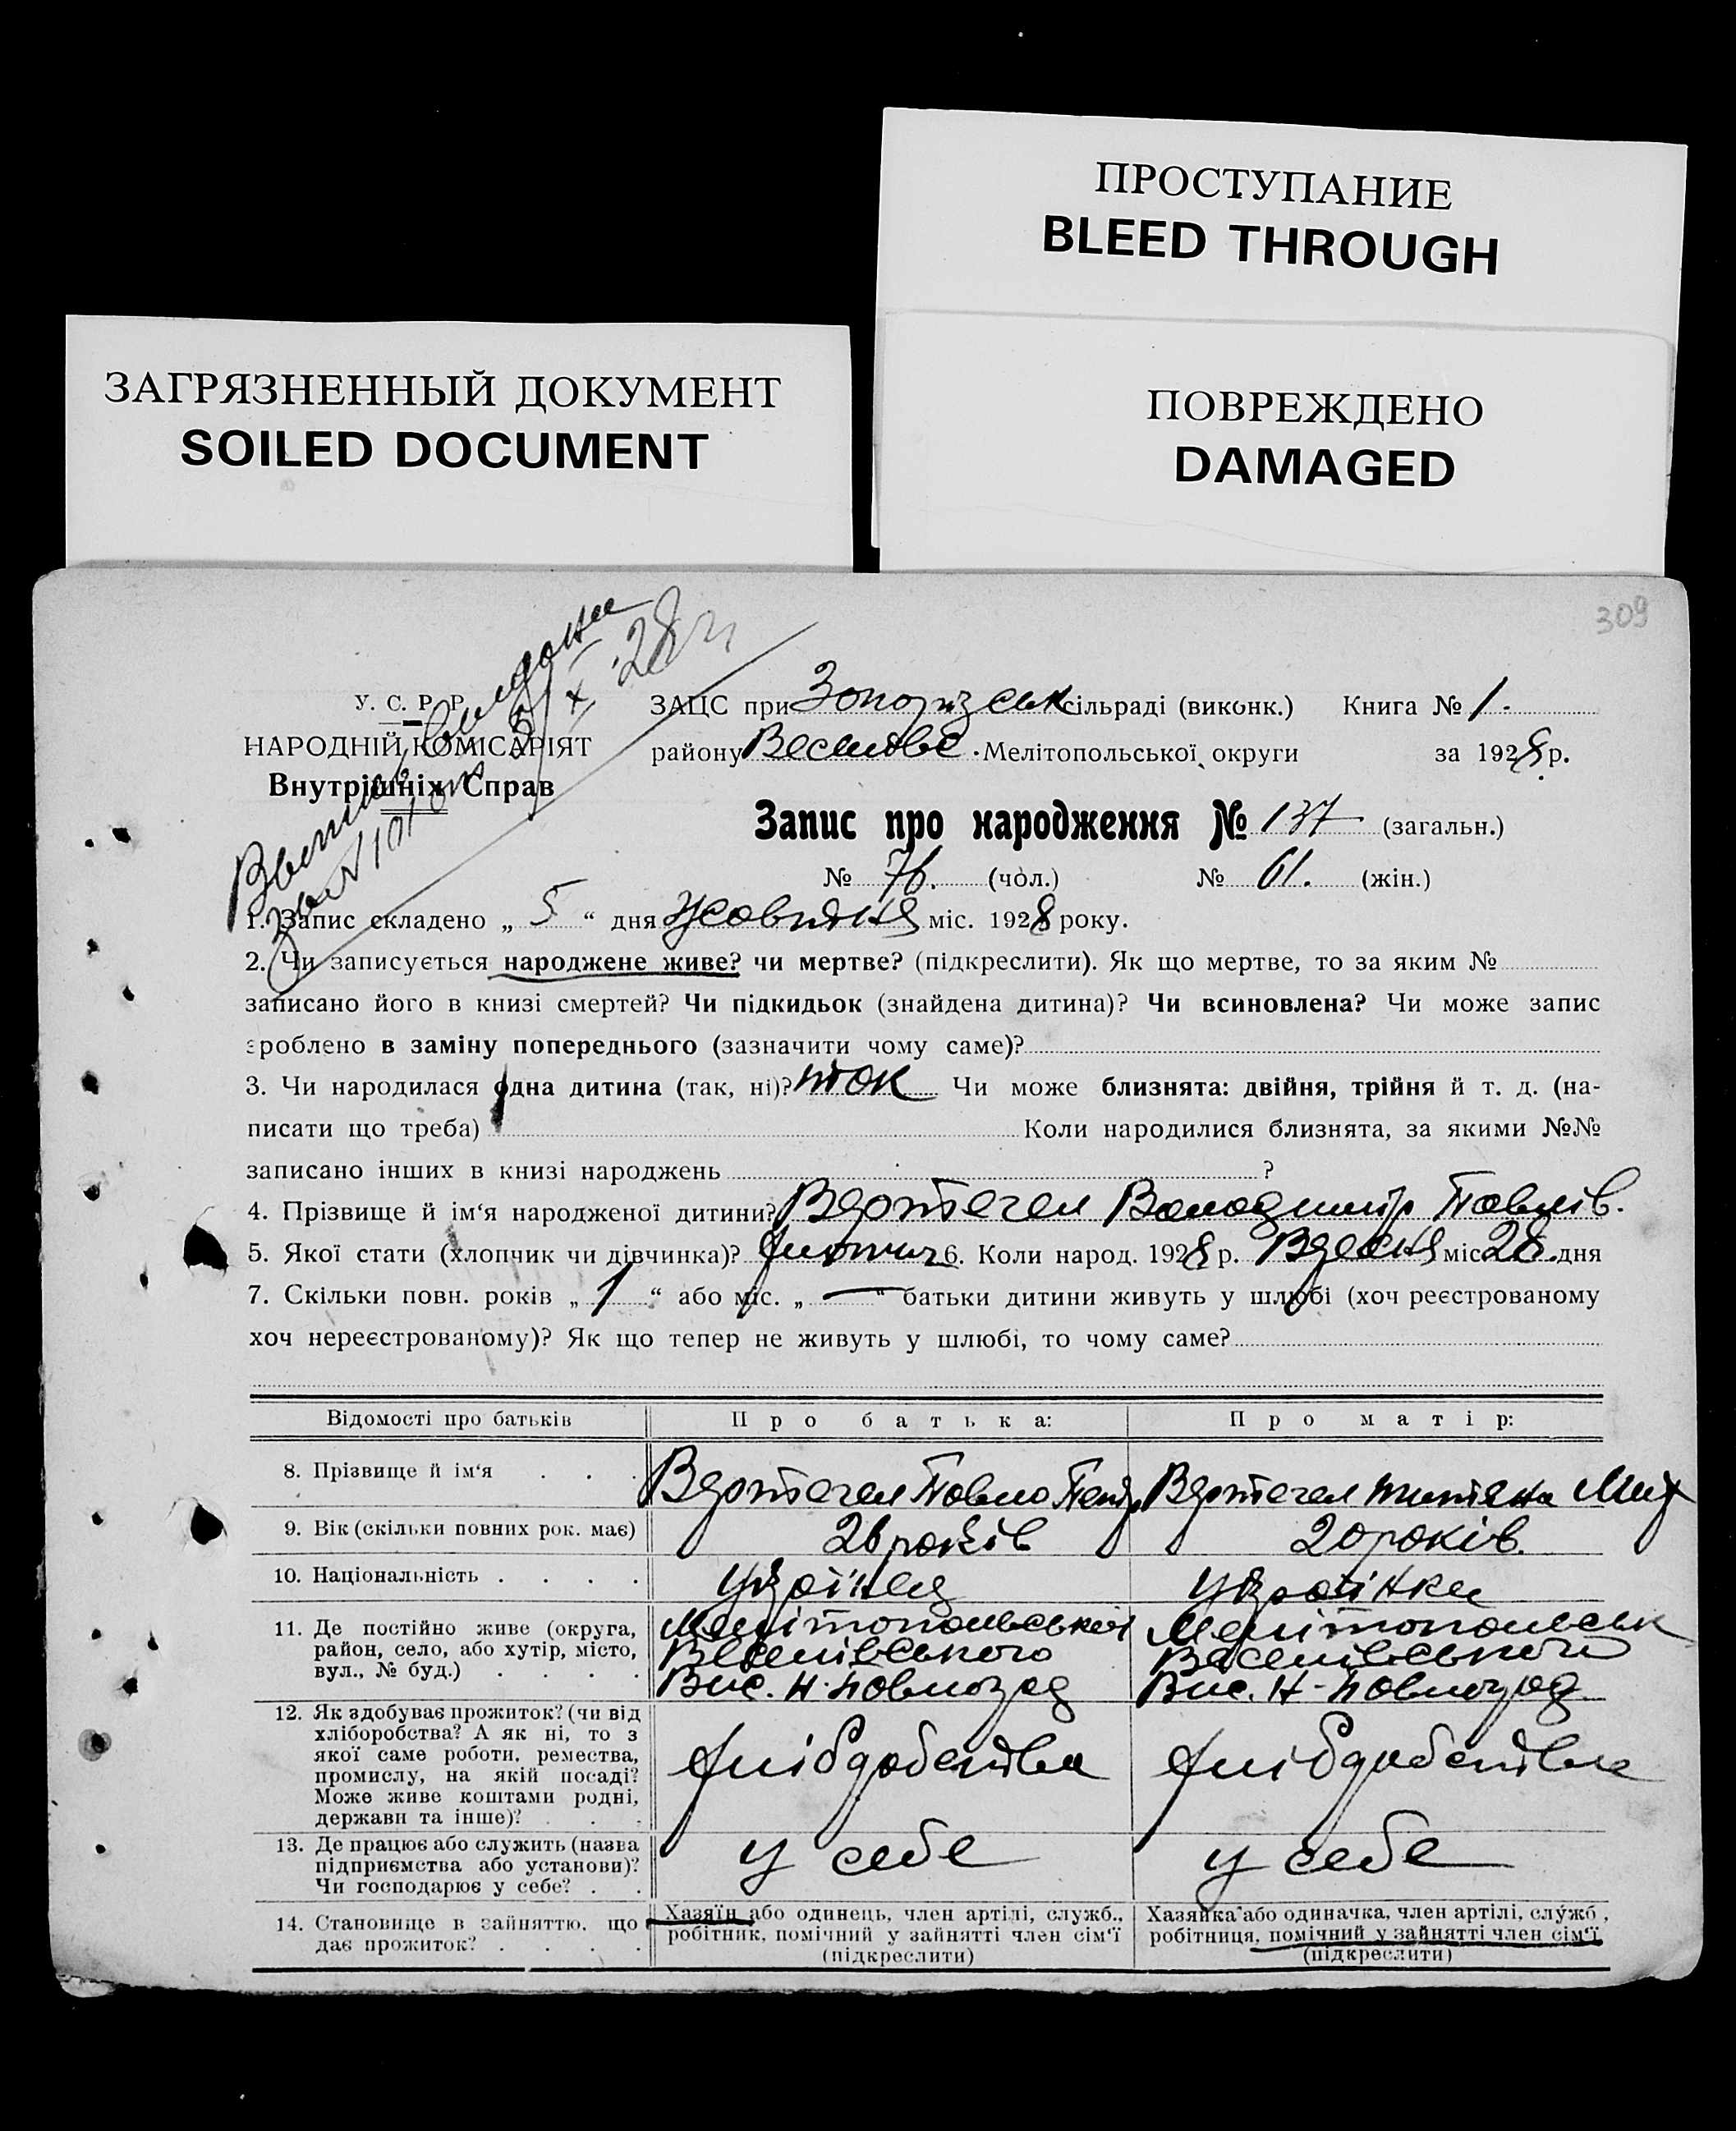 ПРОСТУПАНИЕ
BLEED THROUGH
ЗАГРЯЗНЕННЫЙ ДОКУМЕНТ
SOILED DOCUMENT
ПОВРЕЖДЕНО
DAMAGED
309
5/X 28
У. С. Р. Р.
НАРОДНІЙ КОМІСАРІЯТ
Внутрішніх Справ
ЗАЦС при сільраді (виконк.) Книга № 1.
району Мелітопольської округи за 1928 р.
Запис про народження № 137 (загальн.)
№ 76. (чол.) № 61. (жін.)
1. Запис складено „ 5 “ дня Жовтня міс. 1928 року.
2. Чи записується народжене живе? чи мертве? (підкреслити). Як що мертве, то за яким №
записано його в книзі смертей? Чи підкидьок (знайдена дитина)? Чи всиновлена? Чи може запис
зроблено в заміну попереднього (зазначити чому саме)?
3. Чи народилася одна дитина (так, ні)? так Чи може близнята: двійня, трійня й т. д. (на-
писати що треба) Коли народилися близнята, за якими №№
записано інших в книзі народжень ?
4. Прізвище й ім‘я народженої дитини? Володимір Павлів.
5. Якої стати (хлопчик чи дівчинка)? 6. Коли народ. 1928 р. Вересня міс 28. дня
7. Скільки повн. років „ 1 “ або міс. „ — “ батьки дитини живуть у шлюбі (хоч реєстрованому
хоч нереєстрованому)? Як що тепер не живуть у шлюбі, то чому саме?
Відомості про батьків Про батька: Про матір:
8. Прізвище й ім‘я . . . Павло
9. Вік (скільки повних рок. має) 26 років 20 років.
10. Національність . . . . українец українка
11. Де постійно живе (округа, Мелітопольської Мелітопольськ
район, село, або хутір, місто, Веселівського Веселівського
вул., № буд.) . . . .
12. Як здобуває прожиток? (чи від
хліборобства? А як ні, то з
якої саме роботи, ремества, хліборобства хліборобства
промислу, на якій посаді?
Може живе коштами родні,
держави та інше)? . . .
13. Де працює або служить (назва
підприємства або установи)? у себе у себе
Чи господарює у себе? . .
14. Становище в зайняттю, що Хазяїн або одинець, член артілі, служб., Хазяйка або одиначка, член артілі, служб.,
дає прожиток? . . . . робітник, помічний у зайнятті член сім‘ї робітниця, помічний у зайнятті член сім‘ї
(підкреслити) (підкреслити)